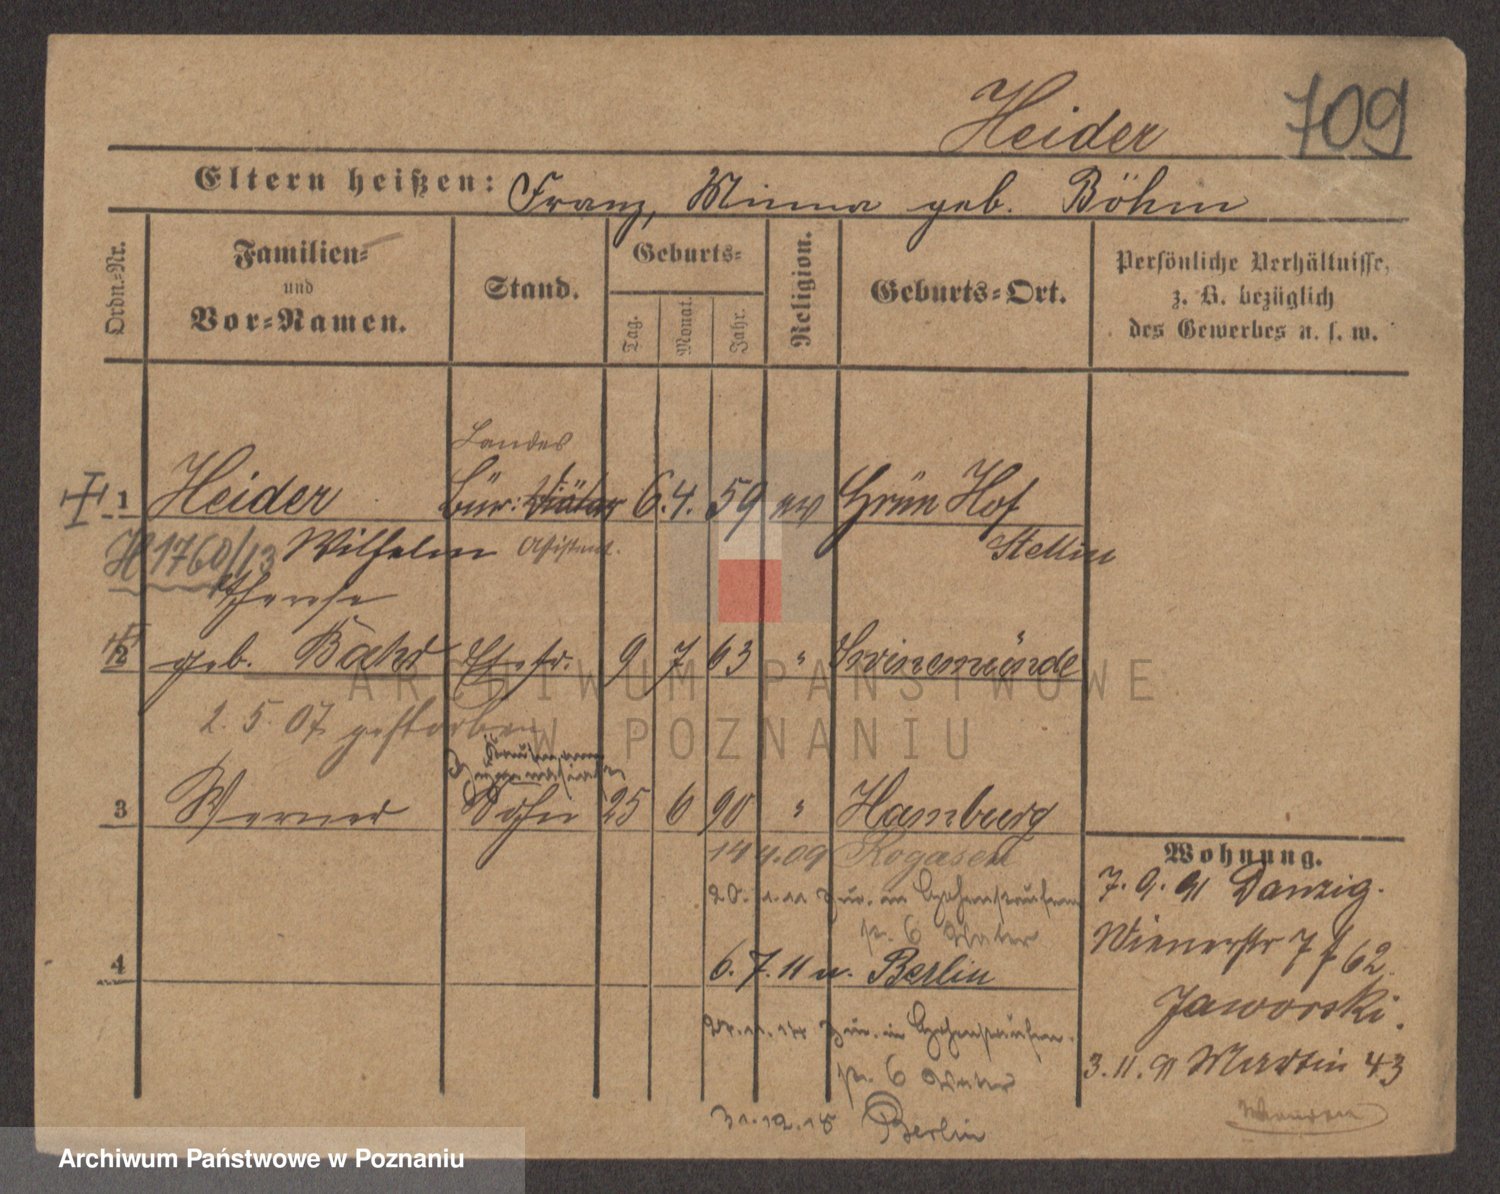 Heider 709
Eltern heißen: Franz, Minna geb. Böhm
Ordn.-Nr.
Familien-
und
Vor-Namen.
Stand.
Geburts-
Tag.
Monat.
Jahr.
Religion.
Geburts-Ort.
Persönliche Verhältnisse,
z. B. bezüglich
des Gewerbes u. s. w.
Landes
1 Heider Bür: Diätar 6. 4. 59 ev Grün Hof
H 1760/13 Wilhelm Assistent. Stettin
Therese
2 geb. Bahr Ehefr. 9 7 63 " Swinemünde
2. 5. 07 gestorben
3 Werner Sohn 25 6 90 " Hamburg
14 4. 09 Rogasen
20. zur. in Hohensalza
6 Vater
4
6. 7. 11 n. Berlin
zur. in
6 Vater
31. 12. 15 Berlin
Wohnung.
7. 9. 91 Danzig.
Wienerstr 7 f 62.
Jaworski.
3. 11. 91 Martin 43
ARCHIWUM PAŃSTWOWE
W POZNANIU
Archiwum Państwowe w Poznaniu